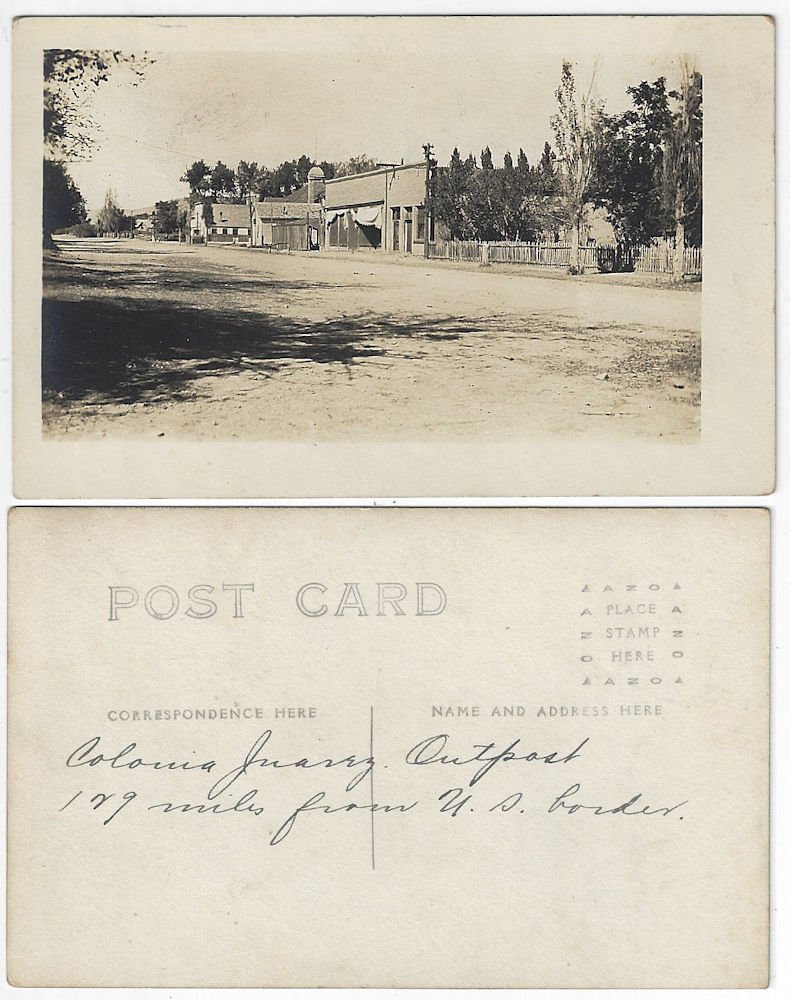 POST CARD
▲ A Z O ▲
A PLACE A
Z STAMP Z
O HERE O
▲ A Z O ▲
CORRESPONDENCE HERE
NAME AND ADDRESS HERE
Colonia Juarez. Outpost
129 miles from U. S. border.